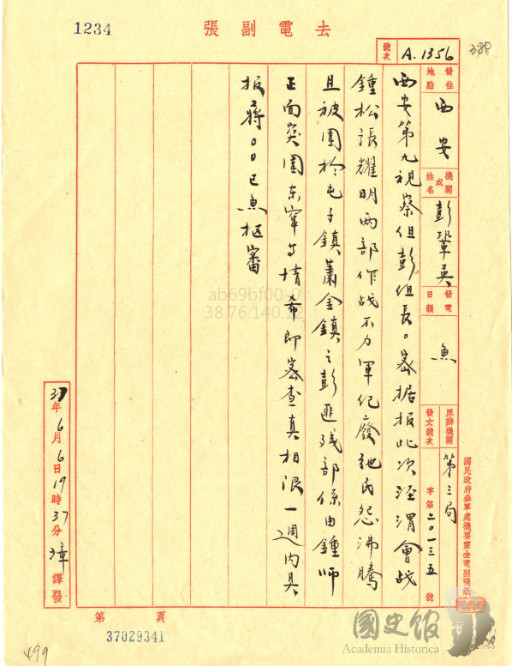 1234
去電副張
號次 A.1356
388
發往地點 西安
機關或姓名 彭鞏英
發電日韻 魚
原辦機關發文號次 第三局 字第二〇一三五號
西安第九視察組彭組長。密據报此次涇渭會战
鍾松張耀明兩部作战不力軍纪廢弛民怨沸騰
且被圍於屯子鎮蕭金鎮之彭匪残部係由鍾师
正面突圍东窜等情希即密查真相限一週内具
报蔣〇〇已魚樞審
37年6月6日19時37分 譯發
國民政府參軍處機要室去電副張紙
第 頁
37029341
499
國史館
Academia Historica
ab69bf00
38.76.140.12